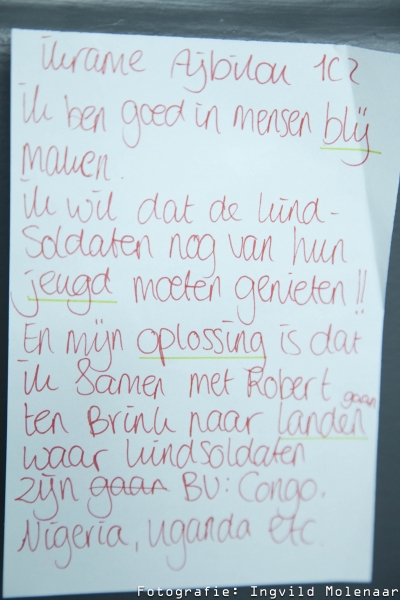 ikrame Ajbilou 1C2
ik ben goed in mensen blij
maken.
ik wil dat de kind-
Soldaten nog van hun
jeugd moeten genieten!!
En mijn oplossing is dat
ik Samen met Robert gaan
ten Brink naar landen
waar kindsoldaten
zijn gaan BV: Congo.
Nigeria, Uganda etc.
Fotografie: Ingvild Molenaar